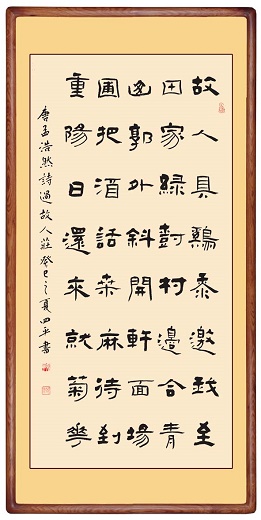 故人具鷄黍邀我至
田家綠樹村邊合青
山郭外斜開軒面場
圃把酒話桑麻待到
重陽日還來就菊花
唐孟浩然詩過故人莊癸巳之夏四平書